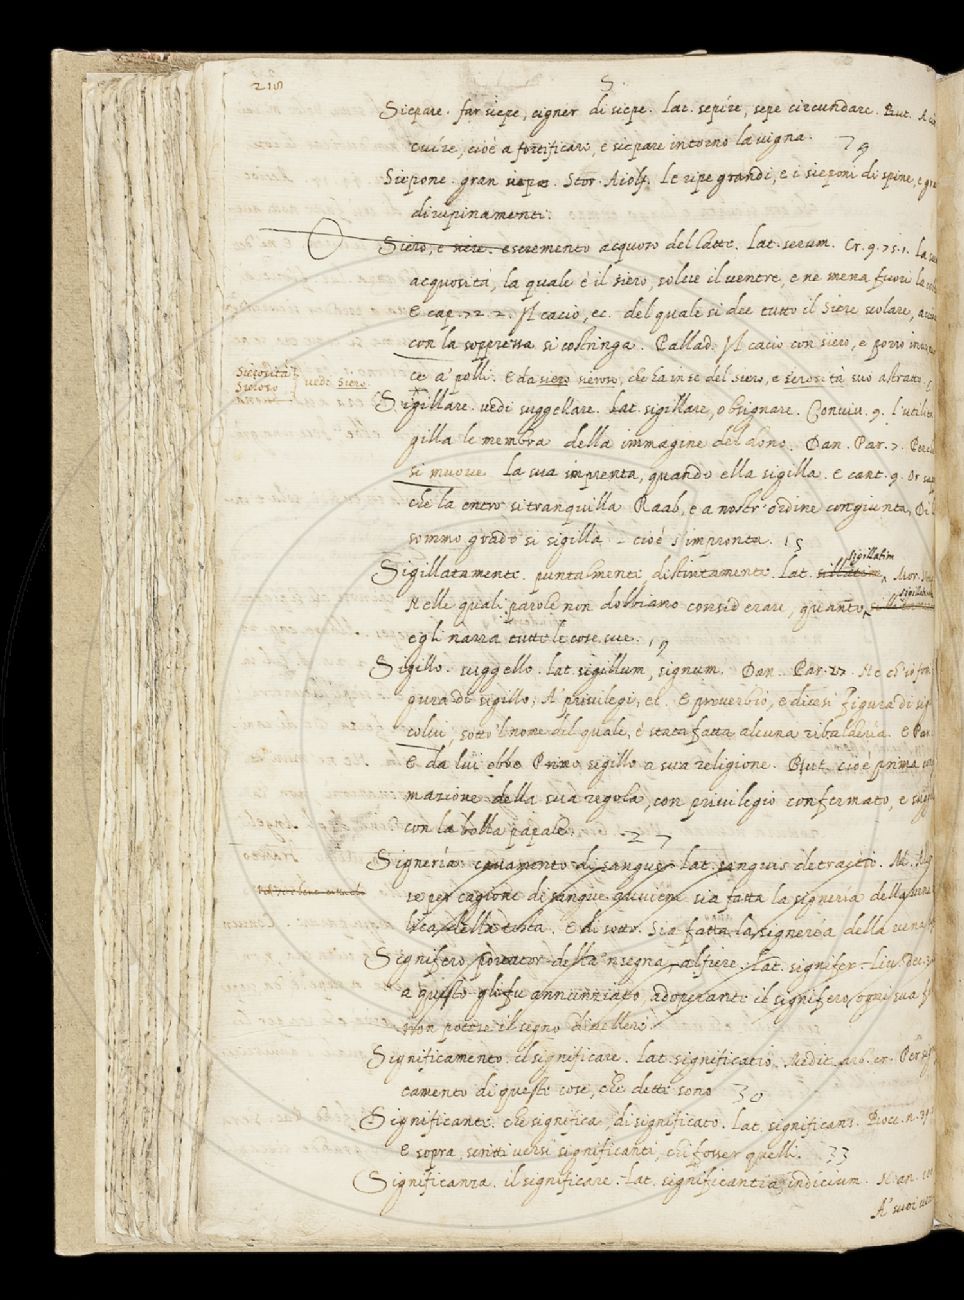 218
S.
Siepare. far siepe, cigner di siepe. Lat. sepíre, sepe circundare. But. A
cuíre, cioè a fortificare, e siepare intorno la vigna.
79
Siepone. gran siepe. Stor. Aiolf. Le ripe grandi, e i sieponi di spine, e
dirupinamenti.
Siero, e siere. escremento acquoso del latte. Lat. serum. Cr. 9. 75. 1. La
acquosità, la quale è il siero, solve il ventre, e ne mena fuori la
E cap. 72. 2. Il cacio, ec. del quale si dee tutto il siere scolare,
con la soppressa si costringa. Pallad. Il cacio con siero, e
ce a' polli. E da siero sieroso, che ha in se del siero, e sierosità suo astratto.
Sierosità
Sieroso
vedi Siero
Sigillare. vedi suggellare. Lat. sigillare, obsignare. Conviv. 9. l'utilità
gilla le membra della immagine del dono. Dan. Par. 7. Per
si muove La sua imprenta, quando ella sigilla. E cant. 9. Or
che la entro si tranquilla Raab, e a nostr' ordine congiunta, Di
sommo grado si sigilla - cioè s' impronta. 15
Sigillatamente. puntalmente distintamente. Lat. sillatim sigillatim. Mor.
Nelle quali parole non dobbiano considerare, quanto
egli narra tutto le cose sue. 19
Sigillo. suggello. Lat. sigillum, signum. Dan. Par. 27. Ne ch' io
gura di sigillo, A' privilegi, ec. E proverbio, e dicesi Figura di
colui, sotto 'l nome del quale, è stata fatta alcuna ribalderia. E Par.
E da lui ebbe Primo sigillo a sua religione. But. cioè prima
mazione della sua regola, con privilegio confermato, e
con la bolla papale.
27
Signería. cavamento di sangue. Lat. sanguis detractio. M.
se per cagione di sangue avviene sia fatta la signería della
lica della testa. E di sotto. Sia fatta la signería della vena
Signifero portator della 'nsegna, alfiere. Lat. signifer. Liv. Dec. 3
a questo gli fu annunziato, adoperante il signifero ogni sua
non potere il segno divellere
Significamento. il significare. Lat. significatio. Medit. arb. cr. Per
camento di queste cose, che dette sono 30
Significante. che significa, di significato. Lat. significans. Bocc. n.
E sopra, scritti versi significanti, chi fosser quelli. 33
Significanza. il significare. Lat. significantia indicium.
A' suoi